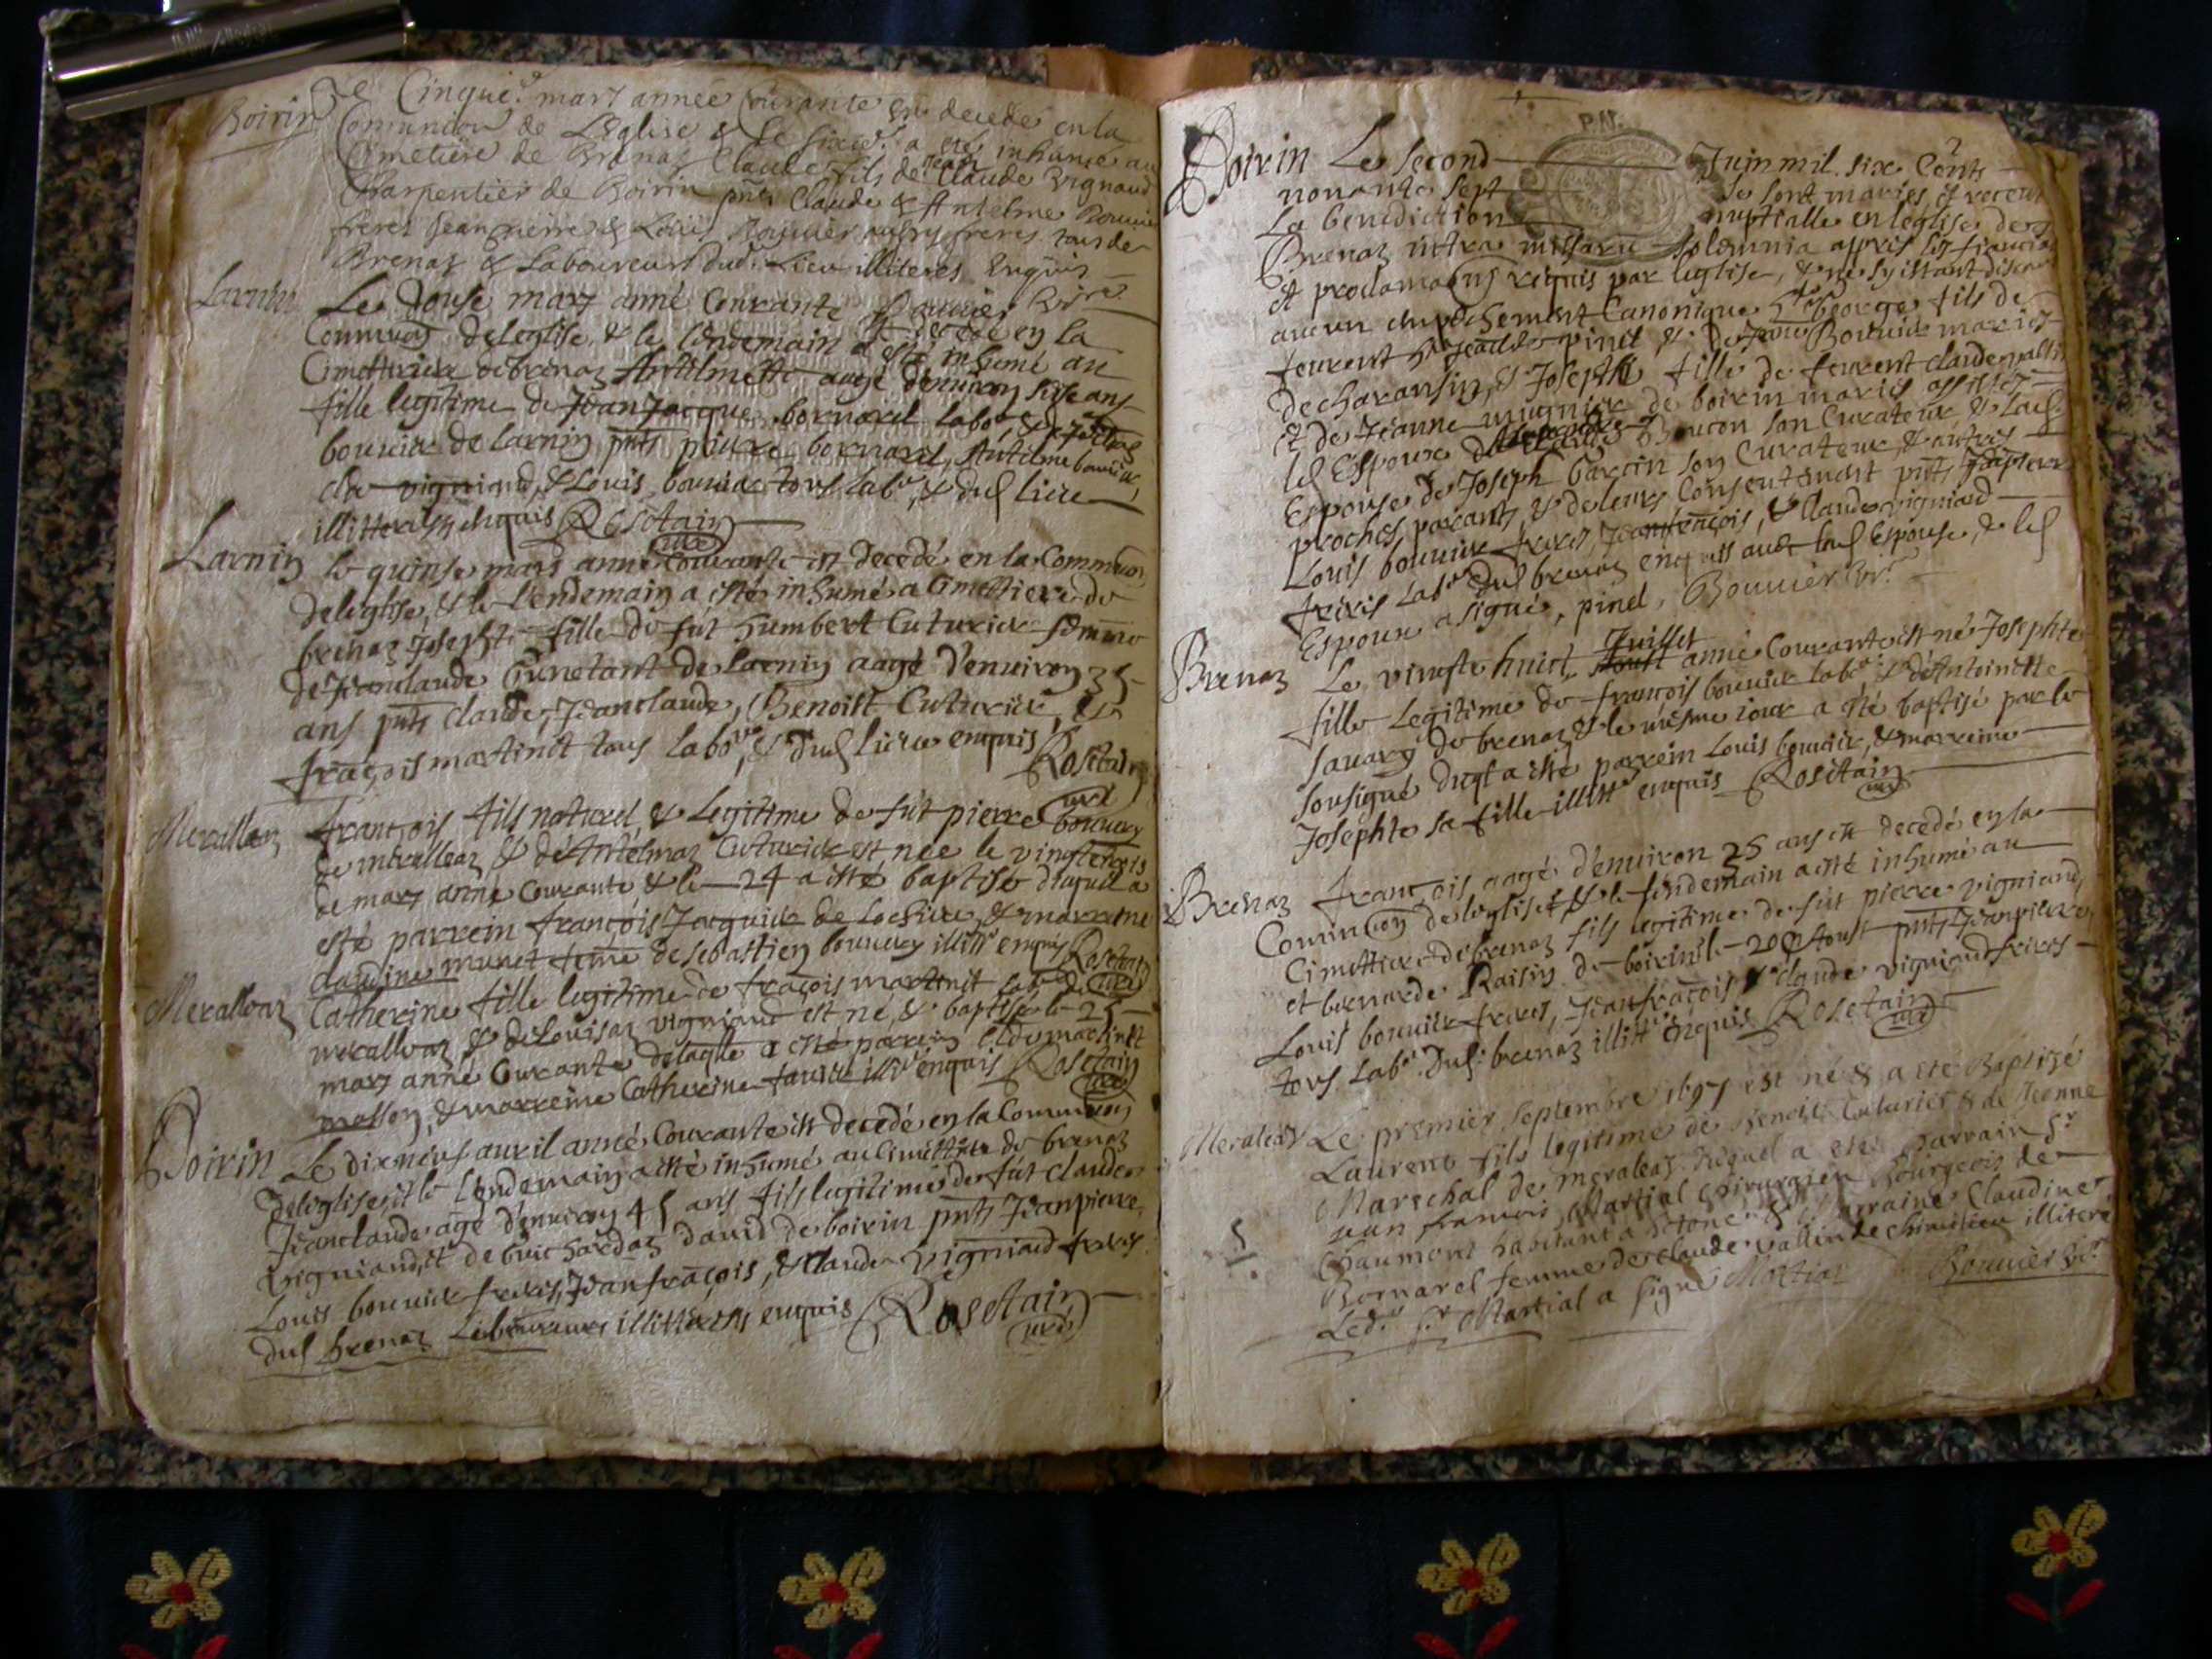 Boirin
Le Cinquie. mars année Courante est decedé en la
Comunion de L'Eglise & Le sixie. a eté inhumé au
Cimetière de Brenaz Claude fils de Claude Vignaud
Charpentier de Boirin pnts Claude & Antelme Bouuier
freres Jean pierre & Louis Bouuier aussy freres tous de
Brenaz & Laboureurs dud. Lieu illiteres Enquis
Bouuier
Larnin
Le douse mars anné Courante est decedé en la
Communon de leglise, & le lendemain a esté inhumé au
Cimettiere de brenaz Antelmette aagé denuiron sise ans
fille legitime de Jean Jacque bornarel labo. &
bouuier de larnin pnts pierre bornarel, Antelme bouuier,
vigniand, & Louis bouuier tous lab. & dud lieu
illitteres enquis Rosetain
curé
Larnin
le quinse mars anné courante est decedé en la Commun̄on
de leglise, & le lendemain a esté inhumé a Cimettiere de
brenaz Josephte fille de fut humbert Cuturier femme
de Jeanclaude de larnin aagé denuiron 35
ans pnts claude, Jeanclaude, Benoist Cuturier, &
fraçois martinet tous labo. & dud lieu enquis Rosetain
curé
Merallaz
francois fils naturel & legitime de fut pierre bouuery
de merallaz & de Antelmaz Cuturier est née le vingtetrois
de mars anné Courante & le 24 a esté baptisé duquel a
esté parrein françois Jacquier de Lochieu, & marrene
claudine munet feme de sebastien bouuery illitt. enquis Rosetain
curé
Merallaz
Catherine fille legitime de fraçois martinet labo. de
merallaz & de Louisaz vigniand est né, & baptisée le 25
mars anné Courante delaqlle a esté parrein martinet
masson, & marreine Catherine illit. enquis Rosetain
curé
Boirin
Le dixneuf auril anné Courante est decedé en la Commun̄on
de leglise, et le lendemain a esté inhumé au Cimettiere de brenaz
Jeanclaude agé denuiron 45 ans fils legitime de fut claude
vigniand, et de david de boirin pnts Jeanpierre,
Louis bouuier freres, Jeanfraçois, & Claude vigniand freres
dud brenaz Laboureurs illitteres enquis Rosetain
curé
P.N.
2
Boirin
Le second Juin mil six Cents
nonante sept se sont mariés et receu
La benediction nuptialle en leglise de
Brenaz intra missaru solemnia appres les fiancia
et proclama͠ons requis par leglise, & ne sy estant
aucun empechement Canonique George fils de
feurent pinel & de Bouuier mariés
de charansin, & Josephte fille de feurent claude vallin
et de Jeanne mugnier de boirin mariés assistes
les Espoux son Curateur & lad.
Espouse de Joseph Garcin son Curateur, & autres
proches parants, & de leurs Consentemant pnts Jeanpierre
Louis bouuier freres, Jeanfraçois, & Claude vigniand
freres lab. dud brenaz enquis auec lad Espouse, & led
Espoux a signé, pinel, Bouuier
Brenaz
Le vingte huict Juillet anné Courante est né Josephte
fille Legitime de françois bouuier labo. & de Antoinette
sauary de brenaz & le mesme iour a esté baptisé par le
sousigné duqt a esté parrein Louis bouuier, & marreine
Josephte sa fille illitt. enquis Rosetain
curé
Brenaz
françois aagé denuiron 25 ans est decedé en la
Commun̄on de leglise & le lendemain a esté inhumé au
Cimettiere de brenaz fils legitime de fut pierre vigniand,
et bernarde Raisin de boirin le 20 Aoust pnts Jeanpierre,
Louis bouuier freres, Jeanfraçois & claude vigniand freres
tous lab. dud. brenaz illitt. enquis Rosetain
curé
Meraleaz
Le premier septembre 1697 est né & a eté Baptizé
Laurent fils legitime de Benoit Cuturier & de Jeanne
Marechal de meraleaz Lequel a eté parrain Sr
Jean francois Martial Chirurgien Bourgeois de
Chaumont habitant a & marraine Claudine
Bornarel femme de claude vallin de illiteré
Led. Sr Martial a signé Martial Bouuier